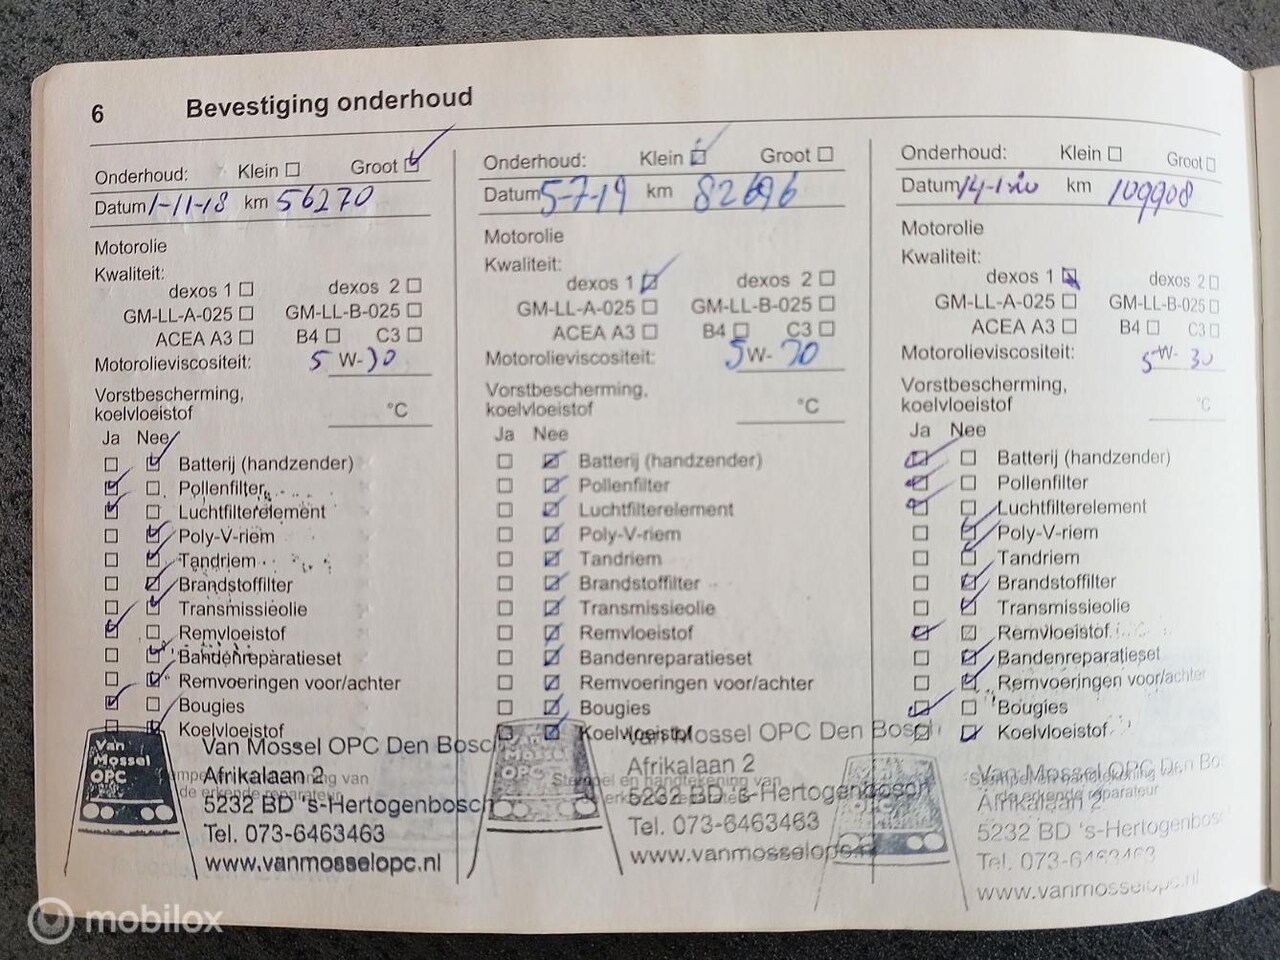 6 Bevestiging onderhoud
Onderhoud: Klein Groot
Datum 1-11-18 km 56270
Motorolie
Kwaliteit:
dexos 1 dexos 2
GM-LL-A-025 GM-LL-B-025
ACEA A3 B4 C3
Motorolieviscositeit: 5 W-30
Vorstbescherming,
koelvloeistof °C
Ja Nee
Batterij (handzender)
Pollenfilter
Luchtfilterelement
Poly-V-riem
Tandriem
Brandstoffilter
Transmissieolie
Remvloeistof
Bandenreparatieset
Remvoeringen voor/achter
Bougies
Koelvloeistof
Van Mossel OPC
Van Mossel OPC Den Bosch
Afrikalaan 2
5232 BD 's-Hertogenbosch
Tel. 073-6463463
www.vanmosselopc.nl
Onderhoud: Klein Groot
Datum 5-7-19 km 82696
Motorolie
Kwaliteit:
dexos 1 dexos 2
GM-LL-A-025 GM-LL-B-025
ACEA A3 B4 C3
Motorolieviscositeit: 5W-30
Vorstbescherming,
koelvloeistof °C
Ja Nee
Batterij (handzender)
Pollenfilter
Luchtfilterelement
Poly-V-riem
Tandriem
Brandstoffilter
Transmissieolie
Remvloeistof
Bandenreparatieset
Remvoeringen voor/achter
Bougies
Koelvloeistof
Van Mossel OPC
Van Mossel OPC Den Bosch
Afrikalaan 2
Stempel en handtekening van
5232 BD 's-Hertogenbosch
Tel. 073-6463463
www.vanmosselopc.nl
Onderhoud: Klein Groot
Datum 14-1-20 km 109908
Motorolie
Kwaliteit:
dexos 1 dexos 2
GM-LL-A-025 GM-LL-B-025
ACEA A3 B4 C3
Motorolieviscositeit: 5W-30
Vorstbescherming,
koelvloeistof °C
Ja Nee
Batterij (handzender)
Pollenfilter
Luchtfilterelement
Poly-V-riem
Tandriem
Brandstoffilter
Transmissieolie
Remvloeistof
Bandenreparatieset
Remvoeringen voor/achter
Bougies
Koelvloeistof
OPC
Van Mossel OPC Den Bo
Stempel en handtekening van
de erkende reparateur
Afrikalaan 2
5232 BD 's-Hertogenbosc
Tel. 073-6463463
www.vanmosselopc.nl
mobilox